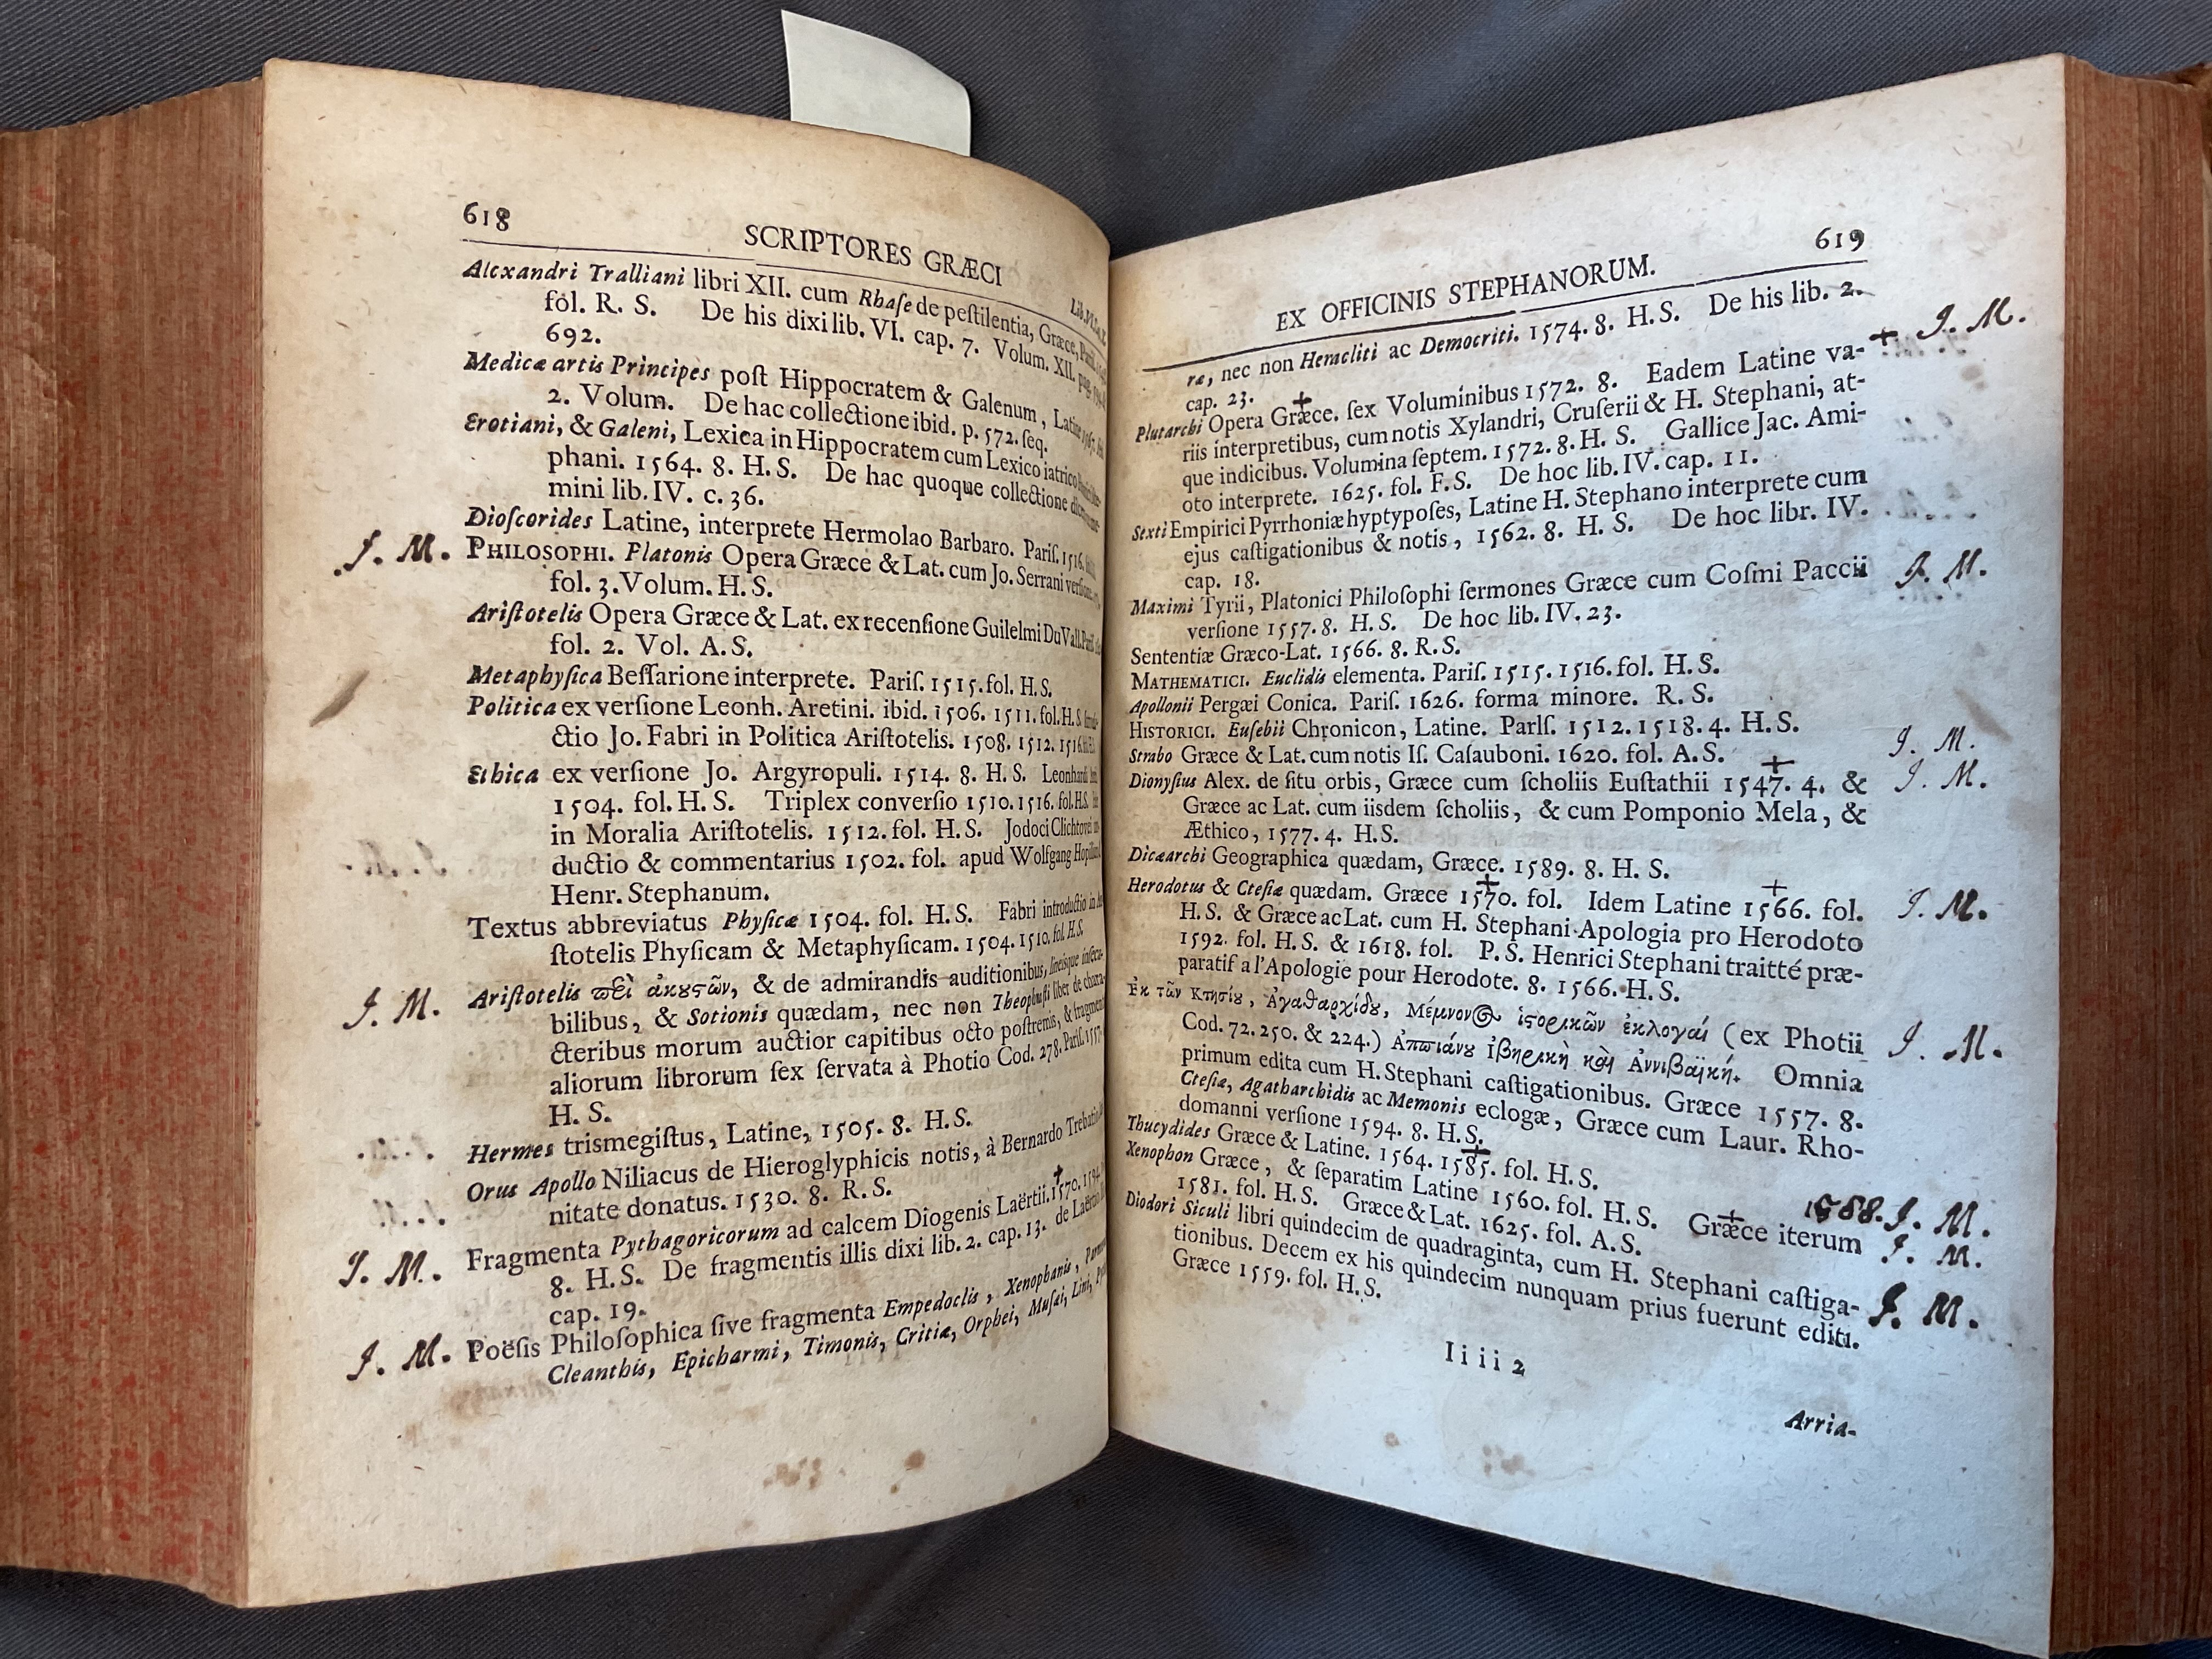 618
SCRIPTORES GRÆCI
Lib.
Alexandri Tralliani libri XII. cum Rhaſe de peſtilentia, Græce, Pariſ.
fol. R. S. De his dixi lib. VI. cap. 7. Volum. XII. pag.
692.
Medicæ artis Principes poſt Hippocratem & Galenum, Latine 1567.
2. Volum. De hac collectione ibid. p. 572. ſeq.
Erotiani, & Galeni, Lexica in Hippocratem cum Lexico iatrico
phani. 1564. 8. H. S. De hac quoque collectione
mini lib. IV. c. 36.
Dioſcorides Latine, interprete Hermolao Barbaro. Pariſ. 1516.
J. M. PHILOSOPHI. Platonis Opera Græce & Lat. cum Jo. Serrani
fol. 3. Volum. H. S.
Ariſtotelis Opera Græce & Lat. ex recenſione Guilelmi Du Vall.
fol. 2. Vol. A. S.
Metaphyſica Beſſarione interprete. Pariſ. 1515. fol. H. S.
Politica ex verſione Leonh. Aretini. ibid. 1506. 1511. fol. H. S.
ctio Jo. Fabri in Politica Ariſtotelis. 1508. 1512. 1516.
Ethica ex verſione Jo. Argyropuli. 1514. 8. H. S. Leonhardi
1504. fol. H. S. Triplex converſio 1510. 1516. fol. H.S.
in Moralia Ariſtotelis. 1512. fol. H. S. Jodoci Clichtovei
ductio & commentarius 1502. fol. apud Wolfgang
Henr. Stephanum.
Textus abbreviatus Phyſicæ 1504. fol. H. S. Fabri introductio in
ſtotelis Phyſicam & Metaphyſicam. 1504. 1510. fol. H. S.
J. M. Ariſtotelis ϖεὶ ἀκουστῶν, & de admirandis auditionibus, lineisque inſeca-
bilibus, & Sotionis quædam, nec non Theophraſti liber de chara-
cteribus morum auctior capitibus octo poſtremis, & fragmenta
aliorum librorum ſex ſervata à Photio Cod. 278. Pariſ. 1557.
H. S.
Hermes trismegiſtus, Latine, 1505. 8. H. S.
Orus Apollo Niliacus de Hieroglyphicis notis, à Bernardo Trebatio
nitate donatus. 1530. 8. R. S.
J. M. Fragmenta Pythagoricorum ad calcem Diogenis Laërtii. + 1570. 1594.
8. H. S. De fragmentis illis dixi lib. 2. cap. 13. de Laërtio
cap. 19.
J. M. Poëſis Philoſophica ſive fragmenta Empedoclis, Xenophanis,
Cleanthis, Epicharmi, Timonis, Critiæ, Orphei, Muſæi, Lini,
619
EX OFFICINIS STEPHANORUM.
ræ, nec non Heracliti ac Democriti. 1574. 8. H. S. De his lib. 2. + J. M.
cap. 23.
Plutarchi Opera + Græce. ſex Voluminibus 1572. 8. Eadem Latine va-
riis interpretibus, cum notis Xylandri, Cruſerii & H. Stephani, at-
que indicibus. Volumina ſeptem. 1572. 8. H. S. Gallice Jac. Ami-
oto interprete. 1625. fol. F. S. De hoc lib. IV. cap. 11.
Sexti Empirici Pyrrhoniæ hyptypoſes, Latine H. Stephano interprete cum
ejus caſtigationibus & notis, 1562. 8. H. S. De hoc libr. IV.
cap. 18.
Maximi Tyrii, Platonici Philoſophi ſermones Græce cum Coſmi Paccii J. M.
verſione 1557. 8. H. S. De hoc lib. IV. 23.
Sententiæ Græco-Lat. 1566. 8. R. S.
MATHEMATICI. Euclidis elementa. Pariſ. 1515. 1516. fol. H. S.
Apollonii Pergæi Conica. Pariſ. 1626. forma minore. R. S.
HISTORICI. Euſebii Chronicon, Latine. Pariſ. 1512. 1518. 4. H. S.
Strabo Græce & Lat. cum notis Iſ. Caſauboni. 1620. fol. A. S. J. M.
Dionyſius Alex. de ſitu orbis, Græce cum ſcholiis Euſtathii + 1547. 4. & J. M.
Græce ac Lat. cum iisdem ſcholiis, & cum Pomponio Mela, &
Æthico, 1577. 4. H. S.
Dicæarchi Geographica quædam, Græce. 1589. 8. H. S.
Herodotus & Cteſiæ quædam. Græce + 1570. fol. Idem Latine + 1566. fol. J. M.
H. S. & Græce ac Lat. cum H. Stephani Apologia pro Herodoto
1592. fol. H. S. & 1618. fol. P. S. Henrici Stephani traitté præ-
paratif a l'Apologie pour Herodote. 8. 1566. H. S.
Ἐκ τῶν Κτησίου, Ἀγαθαρχίδου, Μέμνονος ἱστορικῶν ἐκλογαί (ex Photii J. M.
Cod. 72. 250. & 224.) Ἀππιάνου Ἰβηρικὴ καὶ Ἀννιβαϊκή. Omnia
primum edita cum H. Stephani caſtigationibus. Græce 1557. 8.
Cteſiæ, Agatharchidis ac Memonis eclogæ, Græce cum Laur. Rho-
domanni verſione 1594. 8. H. S.
Thucydides Græce & Latine. 1564. + 1585. fol. H. S. 1588. J. M.
Xenophon Græce, & ſeparatim Latine 1560. fol. H. S. + Græce iterum J. M.
1581. fol. H. S. Græce & Lat. 1625. fol. A. S.
Diodori Siculi libri quindecim de quadraginta, cum H. Stephani caſtiga- J. M.
tionibus. Decem ex his quindecim nunquam prius fuerunt editi.
Græce 1559. fol. H. S.
Iiii 2
Arria-